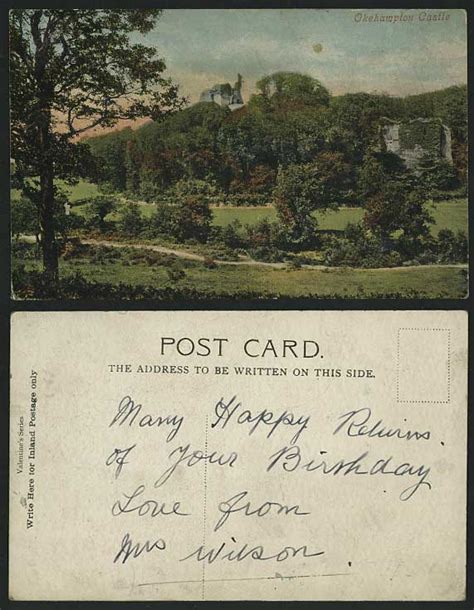 Okehampton Castle
POST CARD.
THE ADDRESS TO BE WRITTEN ON THIS SIDE.
Valentine's Series
Write Here for Inland Postage only
Many Happy Returns.
of Your Birthday
Love from
Mrs Wilson